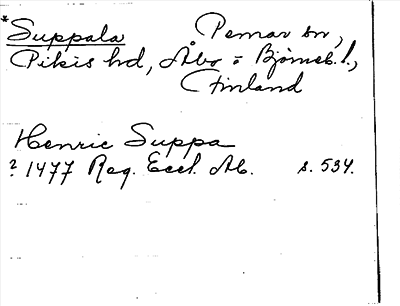 * Suppala Pemar sn,
Pikis hd, Åbo = Björneb. l.,
Finland
Henric Suppa
? 1477 Reg. Eccl. Ab. s. 534.